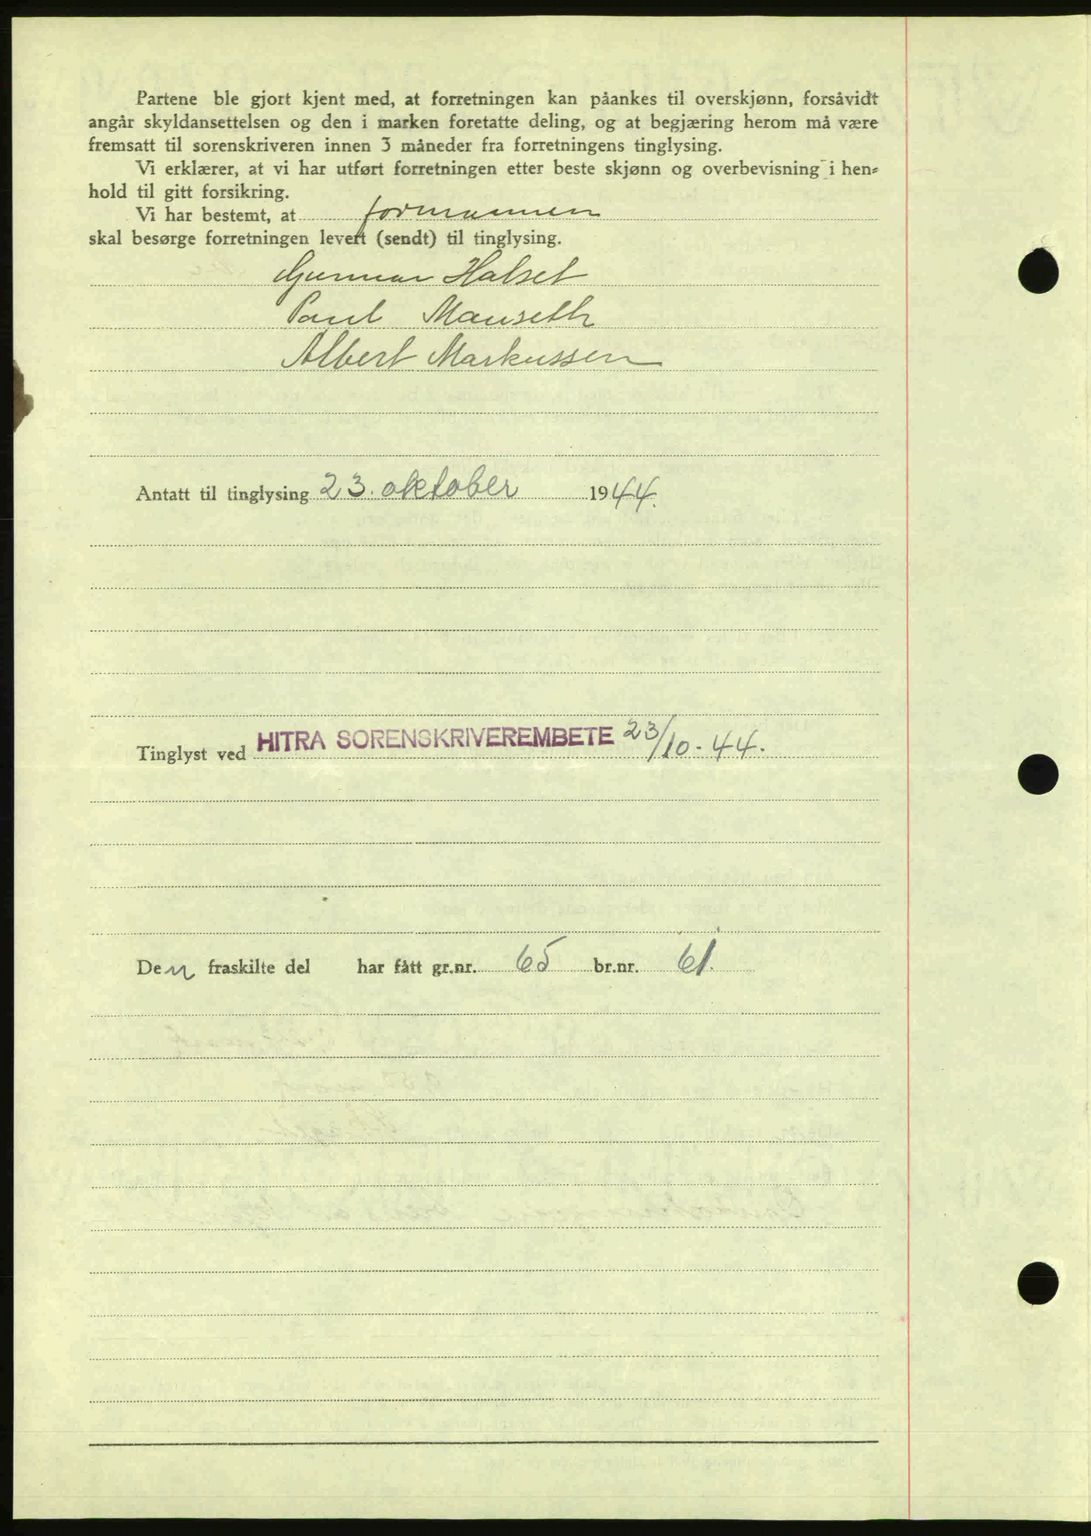 Partene ble gjort kjent med, at forretningen kan påankes til overskjønn, forsåvidt
angår skyldansettelsen og den i marken foretatte deling, og at begjæring herom må være
fremsatt til sorenskriveren innen 3 måneder fra forretningens tinglysing.
Vi erklærer, at vi har utført forretningen etter beste skjønn og overbevisning i hen-
hold til gitt forsikring.
Vi har bestemt, at formannen
skal besørge forretningen levert (sendt) til tinglysing.
Gunnar Halset
Paul Mauseth
Albert Markussen
Antatt til tinglysing 23. oktober 1944.
Tinglyst ved HITRA SORENSKRIVEREMBETE 23/10-44.
Den fraskilte del har fått gr.nr. 65 br.nr. 61.